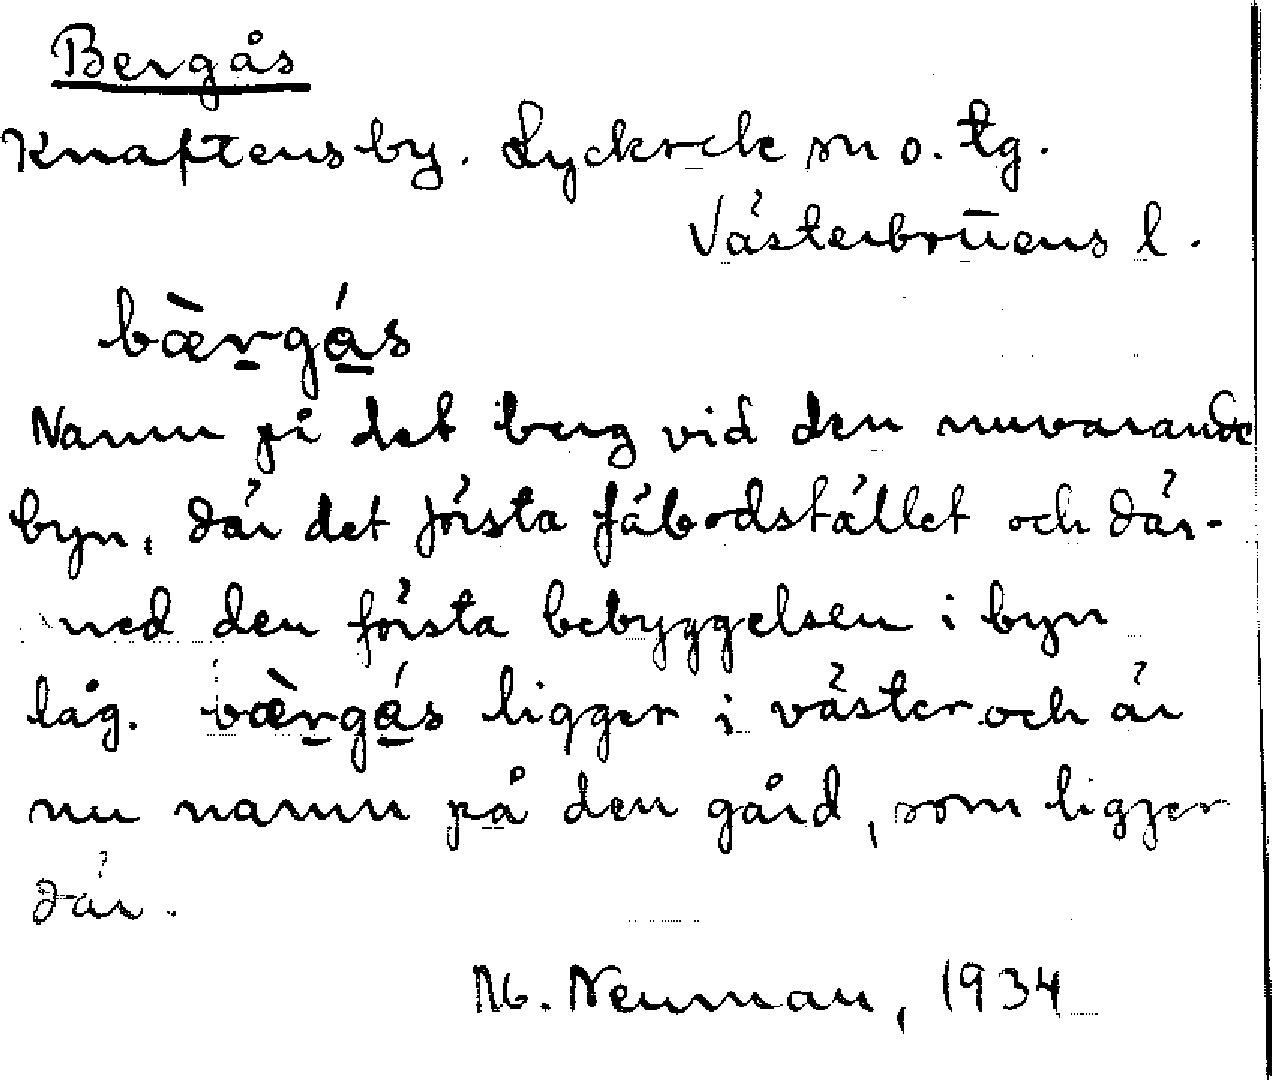 Bergås
Knaftens by. Lycksele sn o. tg.
Västerbottens l.
bæ̀r̠gá̠s
Namn på det berg vid den nuvarande
byn, där det första fäbodstället och där-
med den första bebyggelsen i byn
låg. bæ̀r̠gá̠s ligger i väster och är
nu namn på den gård, som ligger
där.
M. Neuman, 1934